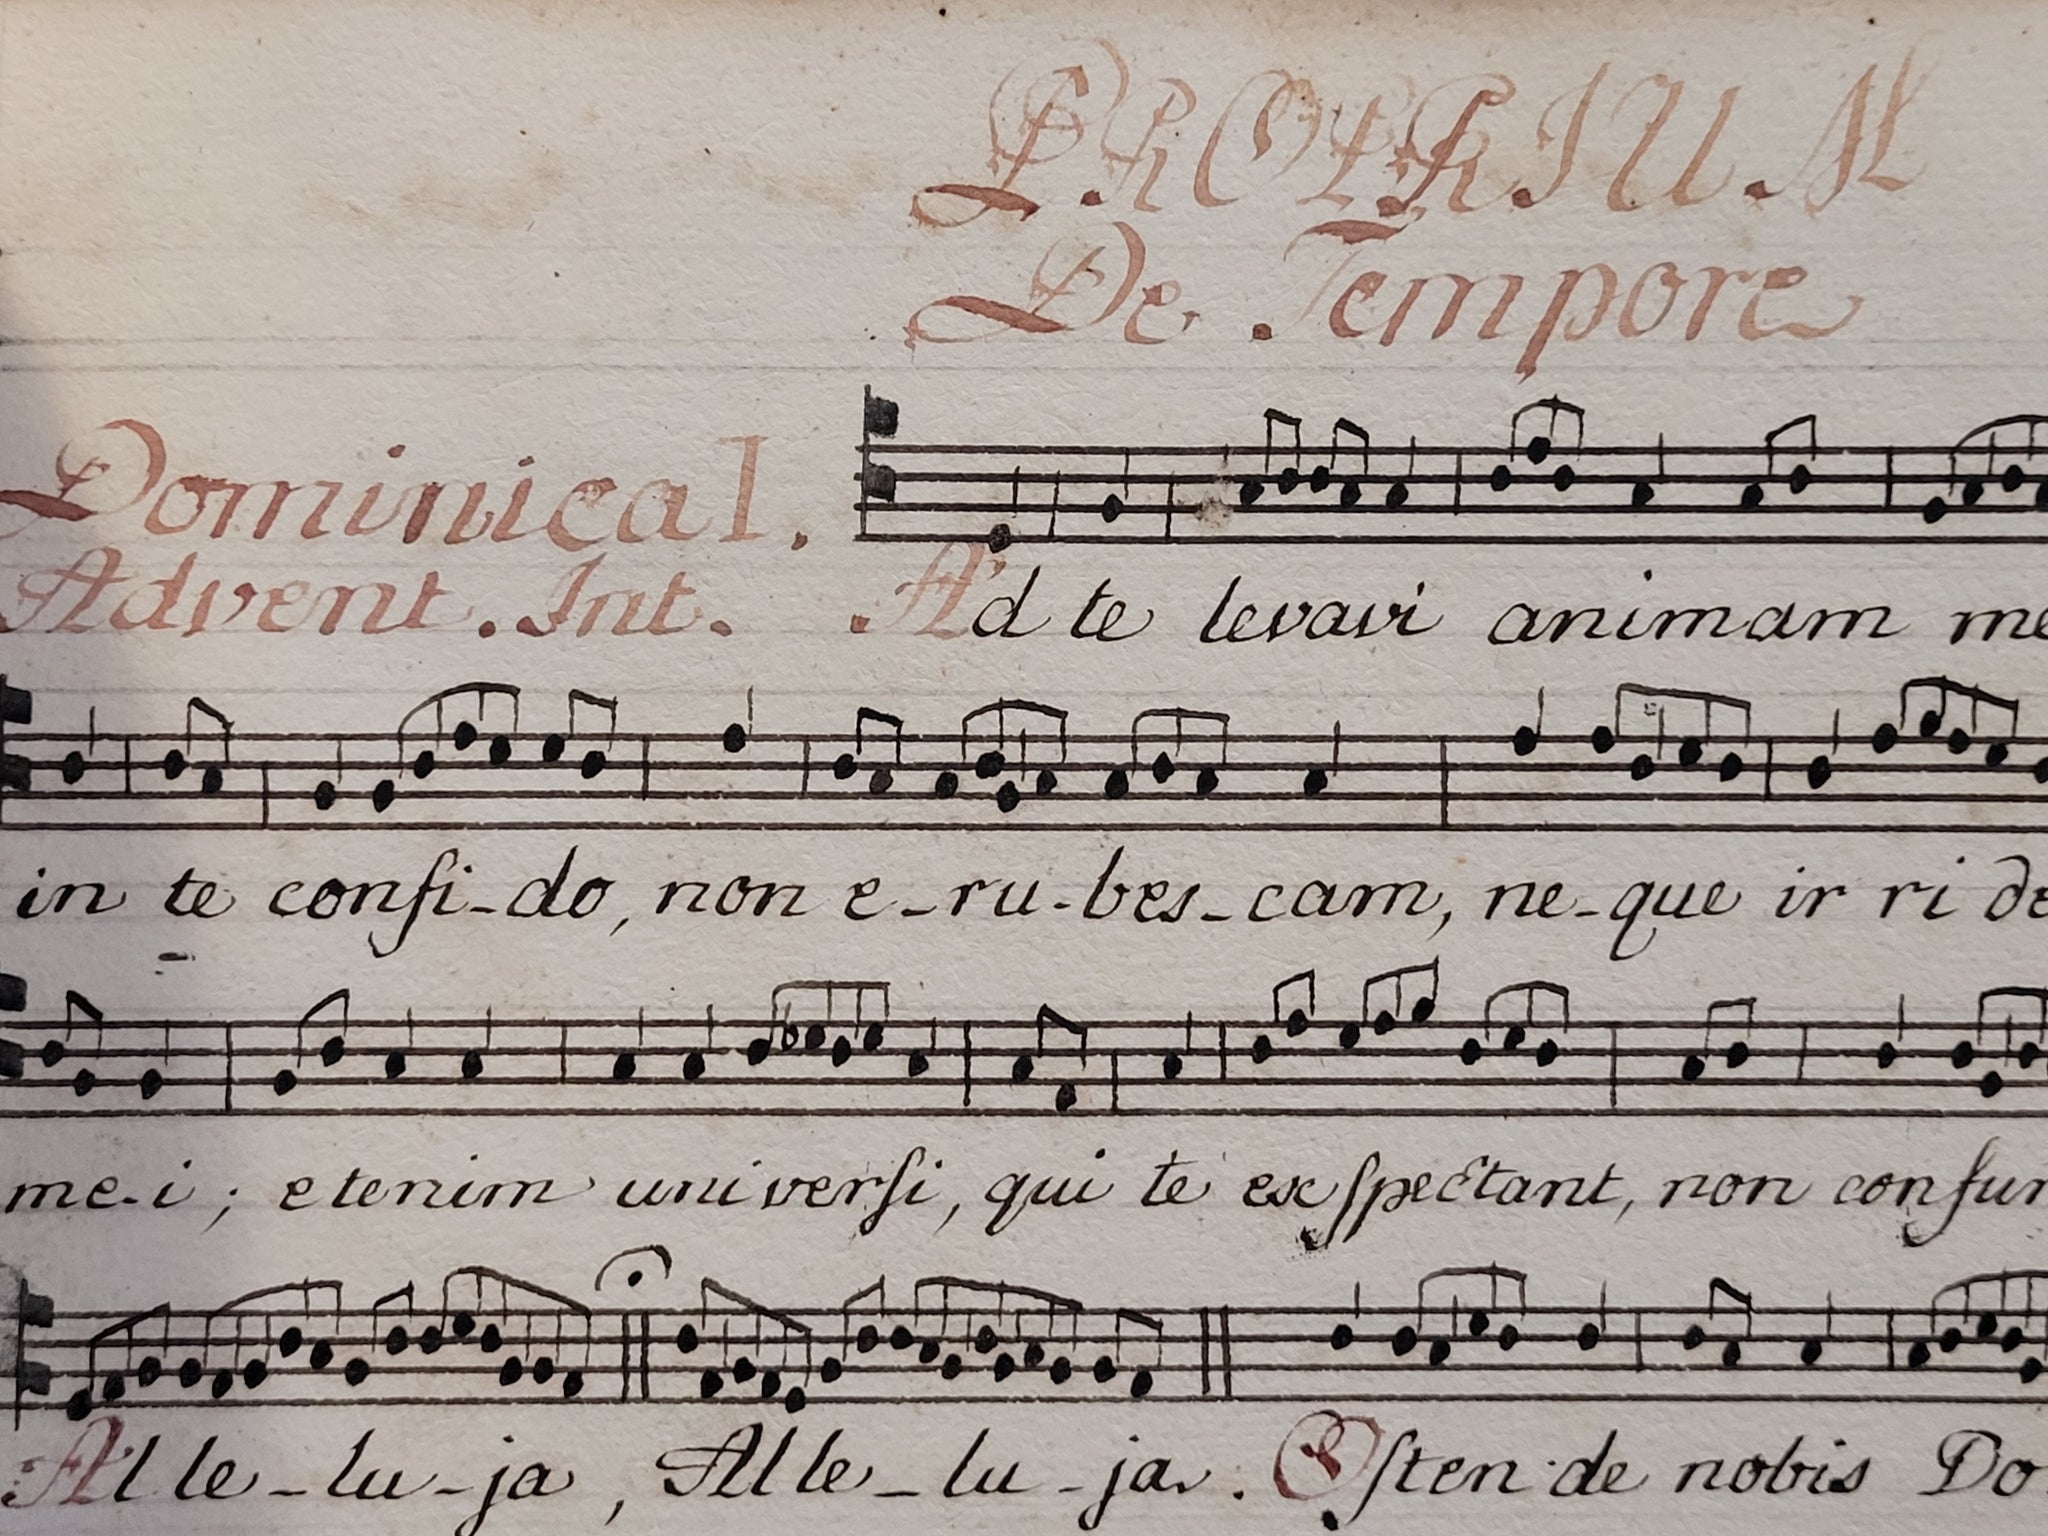 PROPRIUM
De Tempore
Dominica I.
Advent. Int. Ad te levavi animam me
in te confi-do, non e-ru-bes-cam, ne-que ir ri de
me-i; etenim universi, qui te exspectant, non confun
Al le-lu-ja, Alle-lu-ja. Osten-de nobis Do